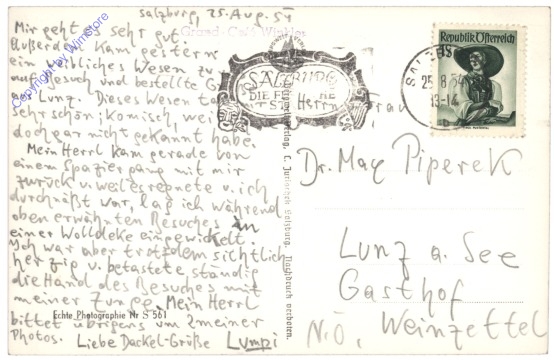 Salzburg, 25. Aug. 54
Mir geht es sehr gut.
Außerdem kam gestern
ein weibliches Wesen zu
auf Besuch und bestellte
aus Lunz. Dieses Wesen
sehr schön; komisch, weil
doch gar nicht gekannt habe.
Mein Herrl kam gerade von
einem Spaziergang mit mir
zurück u. weil es regnete u. ich
durchnäßt war, lag ich während
oben erwähnten Besuches in
einer Wolldecke eingewickelt.
Ich war aber trotzdem sichtlich
herzig u. betastete, ständig
die Hand des Besuches mit
meiner Zunge. Mein Herrl
bittet übrigens um 2 meiner
Photos. Liebe Dackel-Grüße Lumpi
Echte Photographie Nr S 561
Copyright by WinStore
Grand-Café Winkler
SALZBURG
DIE FE
ST
C. Jurischek Salzburg. Nachdruck verboten.
SALZB
25. 8. 54
13-14
Republik Österreich
1S
Herrn Frau
Dr. Max Piperek
Lunz a. See
Gasthof
N.Ö. Weinzettel